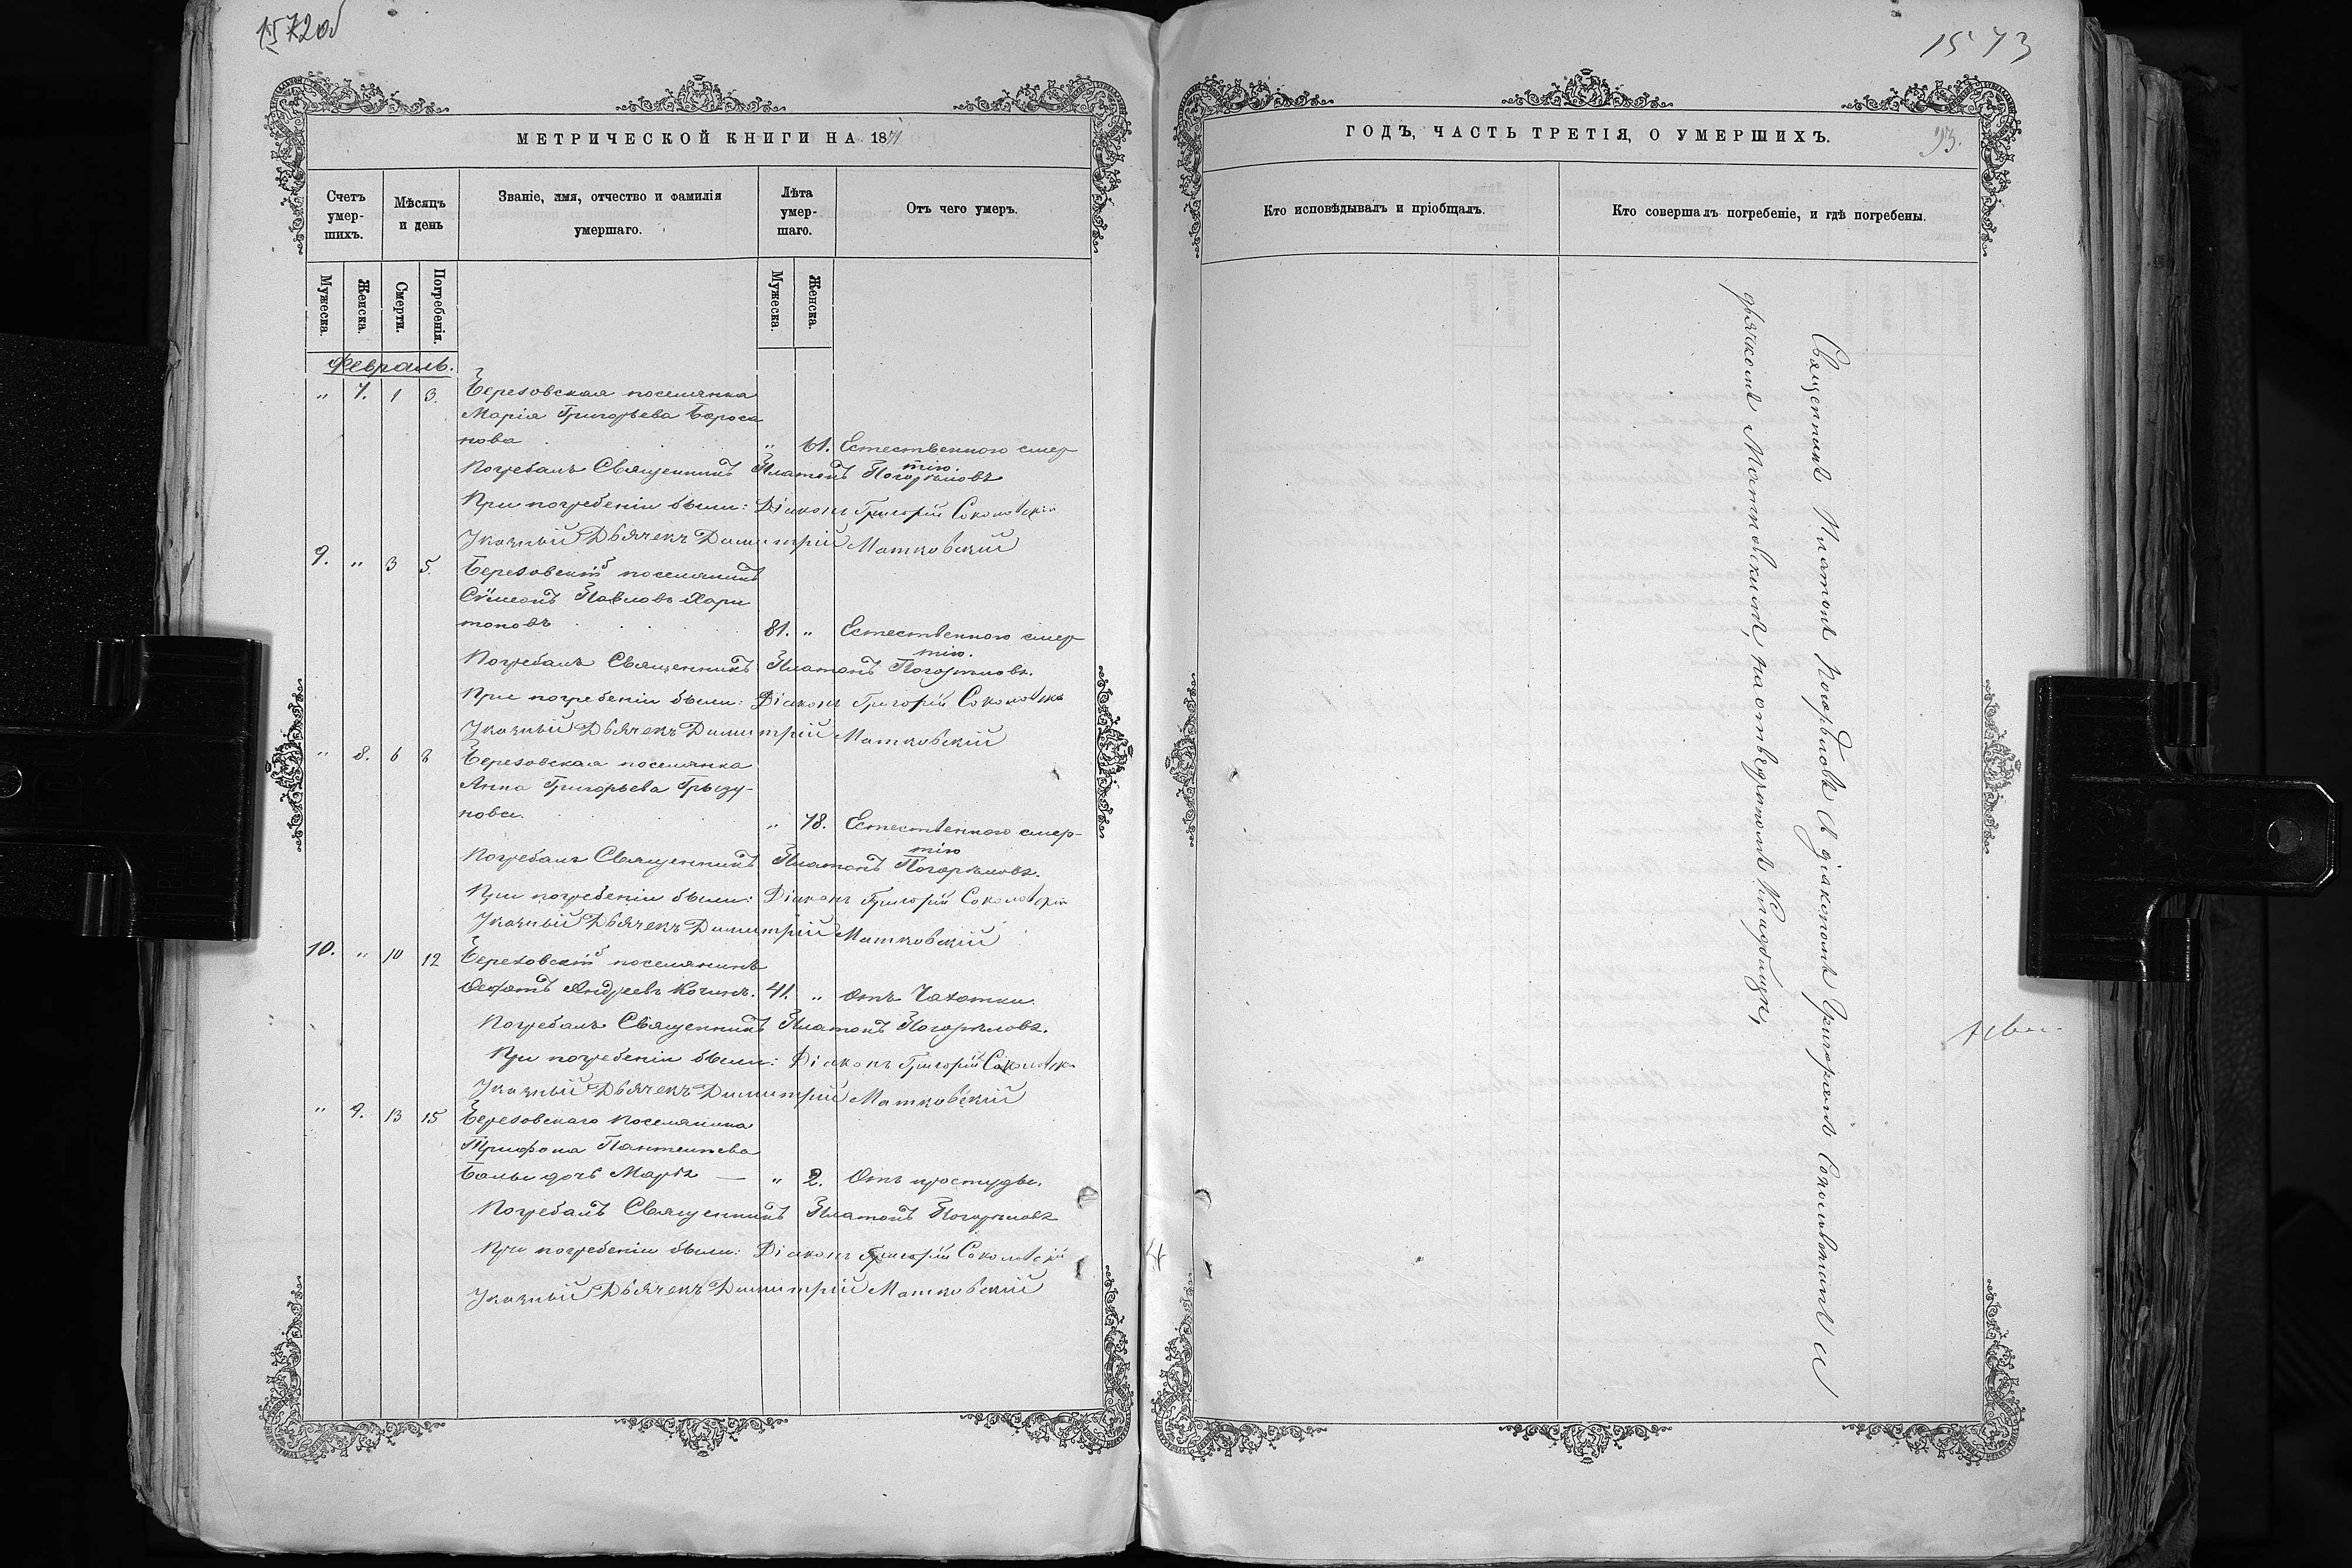 1572об
МЕТРИЧЕСКОЙ КНИГИ НА 1871
Счетъ умер-шихъ.
Мѣсяцъ и день
Званіе, имя, отчество и фамилія умершаго.
Лѣта умер-шаго.
Отъ чего умеръ.
Мужеска.
Женска.
Смерти.
Погребенія.
Мужеска.
Женска.
Февраль.
" 7. 1 3. Березовская поселянка
Марія Григорьева
нова " 61. Естественною смер
тію.
Погребалъ Священникъ Платонъ Погорѣловъ
При погребеніи были: Діаконъ Григорій Соколовскій
Указный Дьячекъ Димитрій Матковскій
9. " 3 5. Березовскій поселянинъ
Сѷмеонъ Павловъ Хари
тоновъ 81. " Естественною смер
тію.
Погребалъ Священникъ Платонъ Погорѣловъ.
При погребеніи были: Діаконъ Григорій
Указный Дьячекъ Димитрій Матковскій
" 8. 6 8 Березовская поселянка
Анна Григорьева Грызу-
нова. " 78. Естественною смер-
тію
Погребалъ Священникъ Платонъ Погорѣловъ.
При погребеніи были: Діаконъ Григорій Соколовскій
Указный Дьячекъ Димитрій Матковскій
10. " 10 12 Березовскій поселянинъ
Андреевъ 41. " Отъ Чахотки.
Погребалъ Священникъ Платонъ Погорѣловъ.
При погребеніи были: Діаконъ Григорій
Указный Дьячекъ Димитрій Матковскій
" 9. 13 15 Березовскаго поселянина
Трифона Пантелѣева
дочь Марія — " 2. Отъ простуды.
Погребалъ Священникъ Платонъ Погорѣловъ
При погребеніи были: Діаконъ Григорій Соколовскій
Указный Дьячекъ Димитрій Матковскій
1573
ГОДЪ, ЧАСТЬ ТРЕТІЯ, О УМЕРШИХЪ.
93.
Кто исповѣдывалъ и пріобщалъ.
Кто совершалъ погребеніе, и гдѣ погребены.
Священникъ Платонъ Погорѣловъ съ діакономъ Григоріемъ Соколовскимъ и
дьячкомъ Матковскимъ, на отведенномъ кладбищѣ,